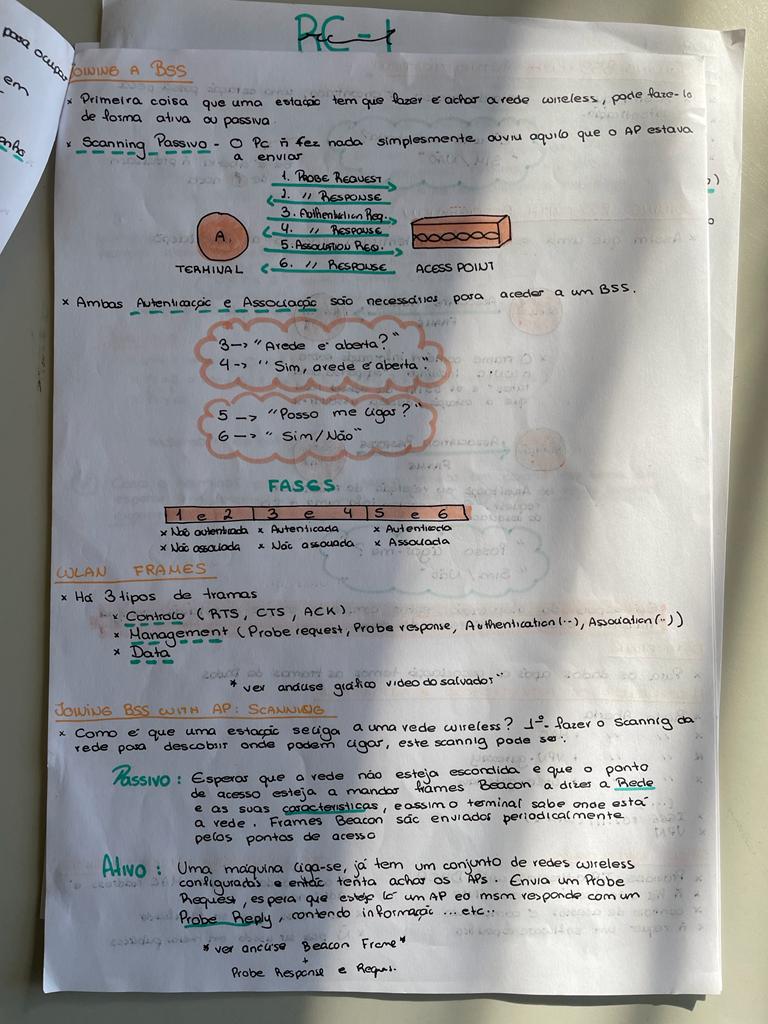 para ocupar
em
RC-1
JOINING A BSS
× Primeira coisa que uma estação tem que fazer é achar a rede wireless, pode faze-lo
de forma ativa ou passiva.
× Scanning Passivo - O Pc ñ fez nada simplesmente ouviu aquilo que o AP estava
a enviar
1. PROBE REQUEST
2. 〃 RESPONSE
3. Authentication Req.
4. 〃 RESPONSE
5. ASSOCIATION REQ.
6. 〃 RESPONSE
A.
TERMINAL
ACESS POINT
× Ambas Autenticação e Associação são necessárias para aceder a um BSS.
3 -> "A rede é aberta?"
4 -> "Sim, a rede é aberta."
5 -> "Posso me ligar?"
6 -> "Sim/Não"
FASES
1 e 2 | 3 e 4 | 5 e 6
× Não autenticada × Autenticada × Autenticada
× Não associada × Não associada × Associada
WLAN FRAMES
× Há 3 tipos de tramas
× Controlo (RTS, CTS, ACK)
× Management (Probe request, Probe response, Authentication(··), Association(··))
× Data
* ver análise gráfico video do salvador"
JOINING BSS WITH AP: SCANNING
× Como é que uma estação se liga a uma rede wireless? 1º- fazer o scannig da
rede para descobrir onde podem ligar, este scannig pode ser:
PASSIVO: Esperar que a rede não esteja escondida e que o ponto
de acesso esteja a mandar frames Beacon a dizer a Rede
e as suas caracteristicas, e assim o terminal sabe onde está
a rede. Frames Beacon são enviados periodicalmente
pelos pontos de acesso
ATIVO: Uma máquina liga-se, já tem um conjunto de redes wireless
configuradas e então tenta achar os APs. Envia um Probe
Request, espera que esteja lá um AP e o msm responde com um
Probe Reply, contendo informação ... etc..
* ver análise Beacon Frame*
+
Probe Response e Reques.